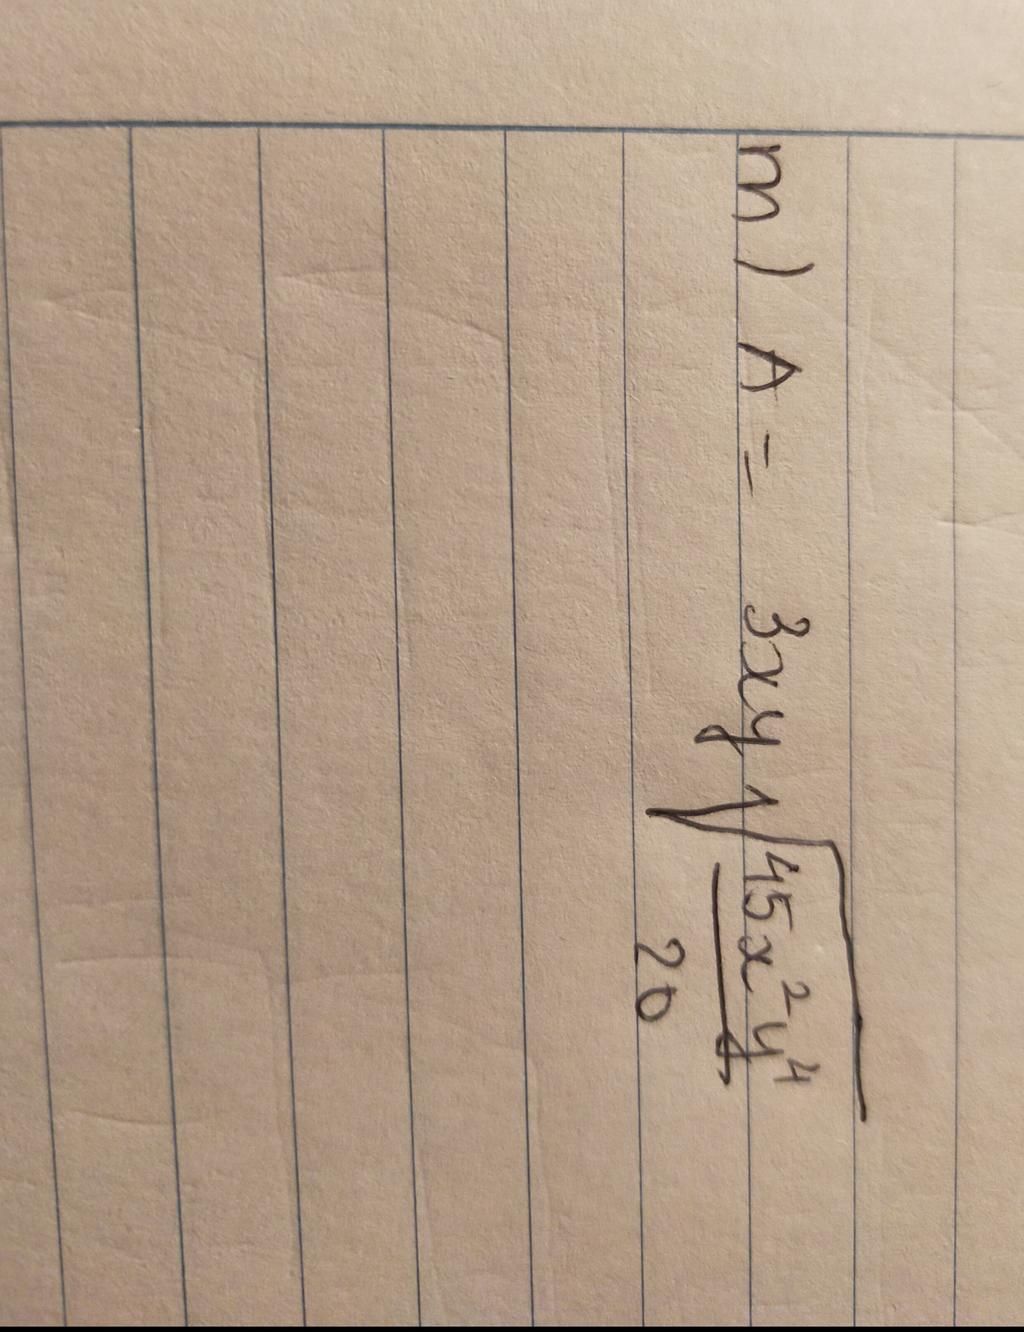 m) A = 3xy√(45x²y⁴/20)